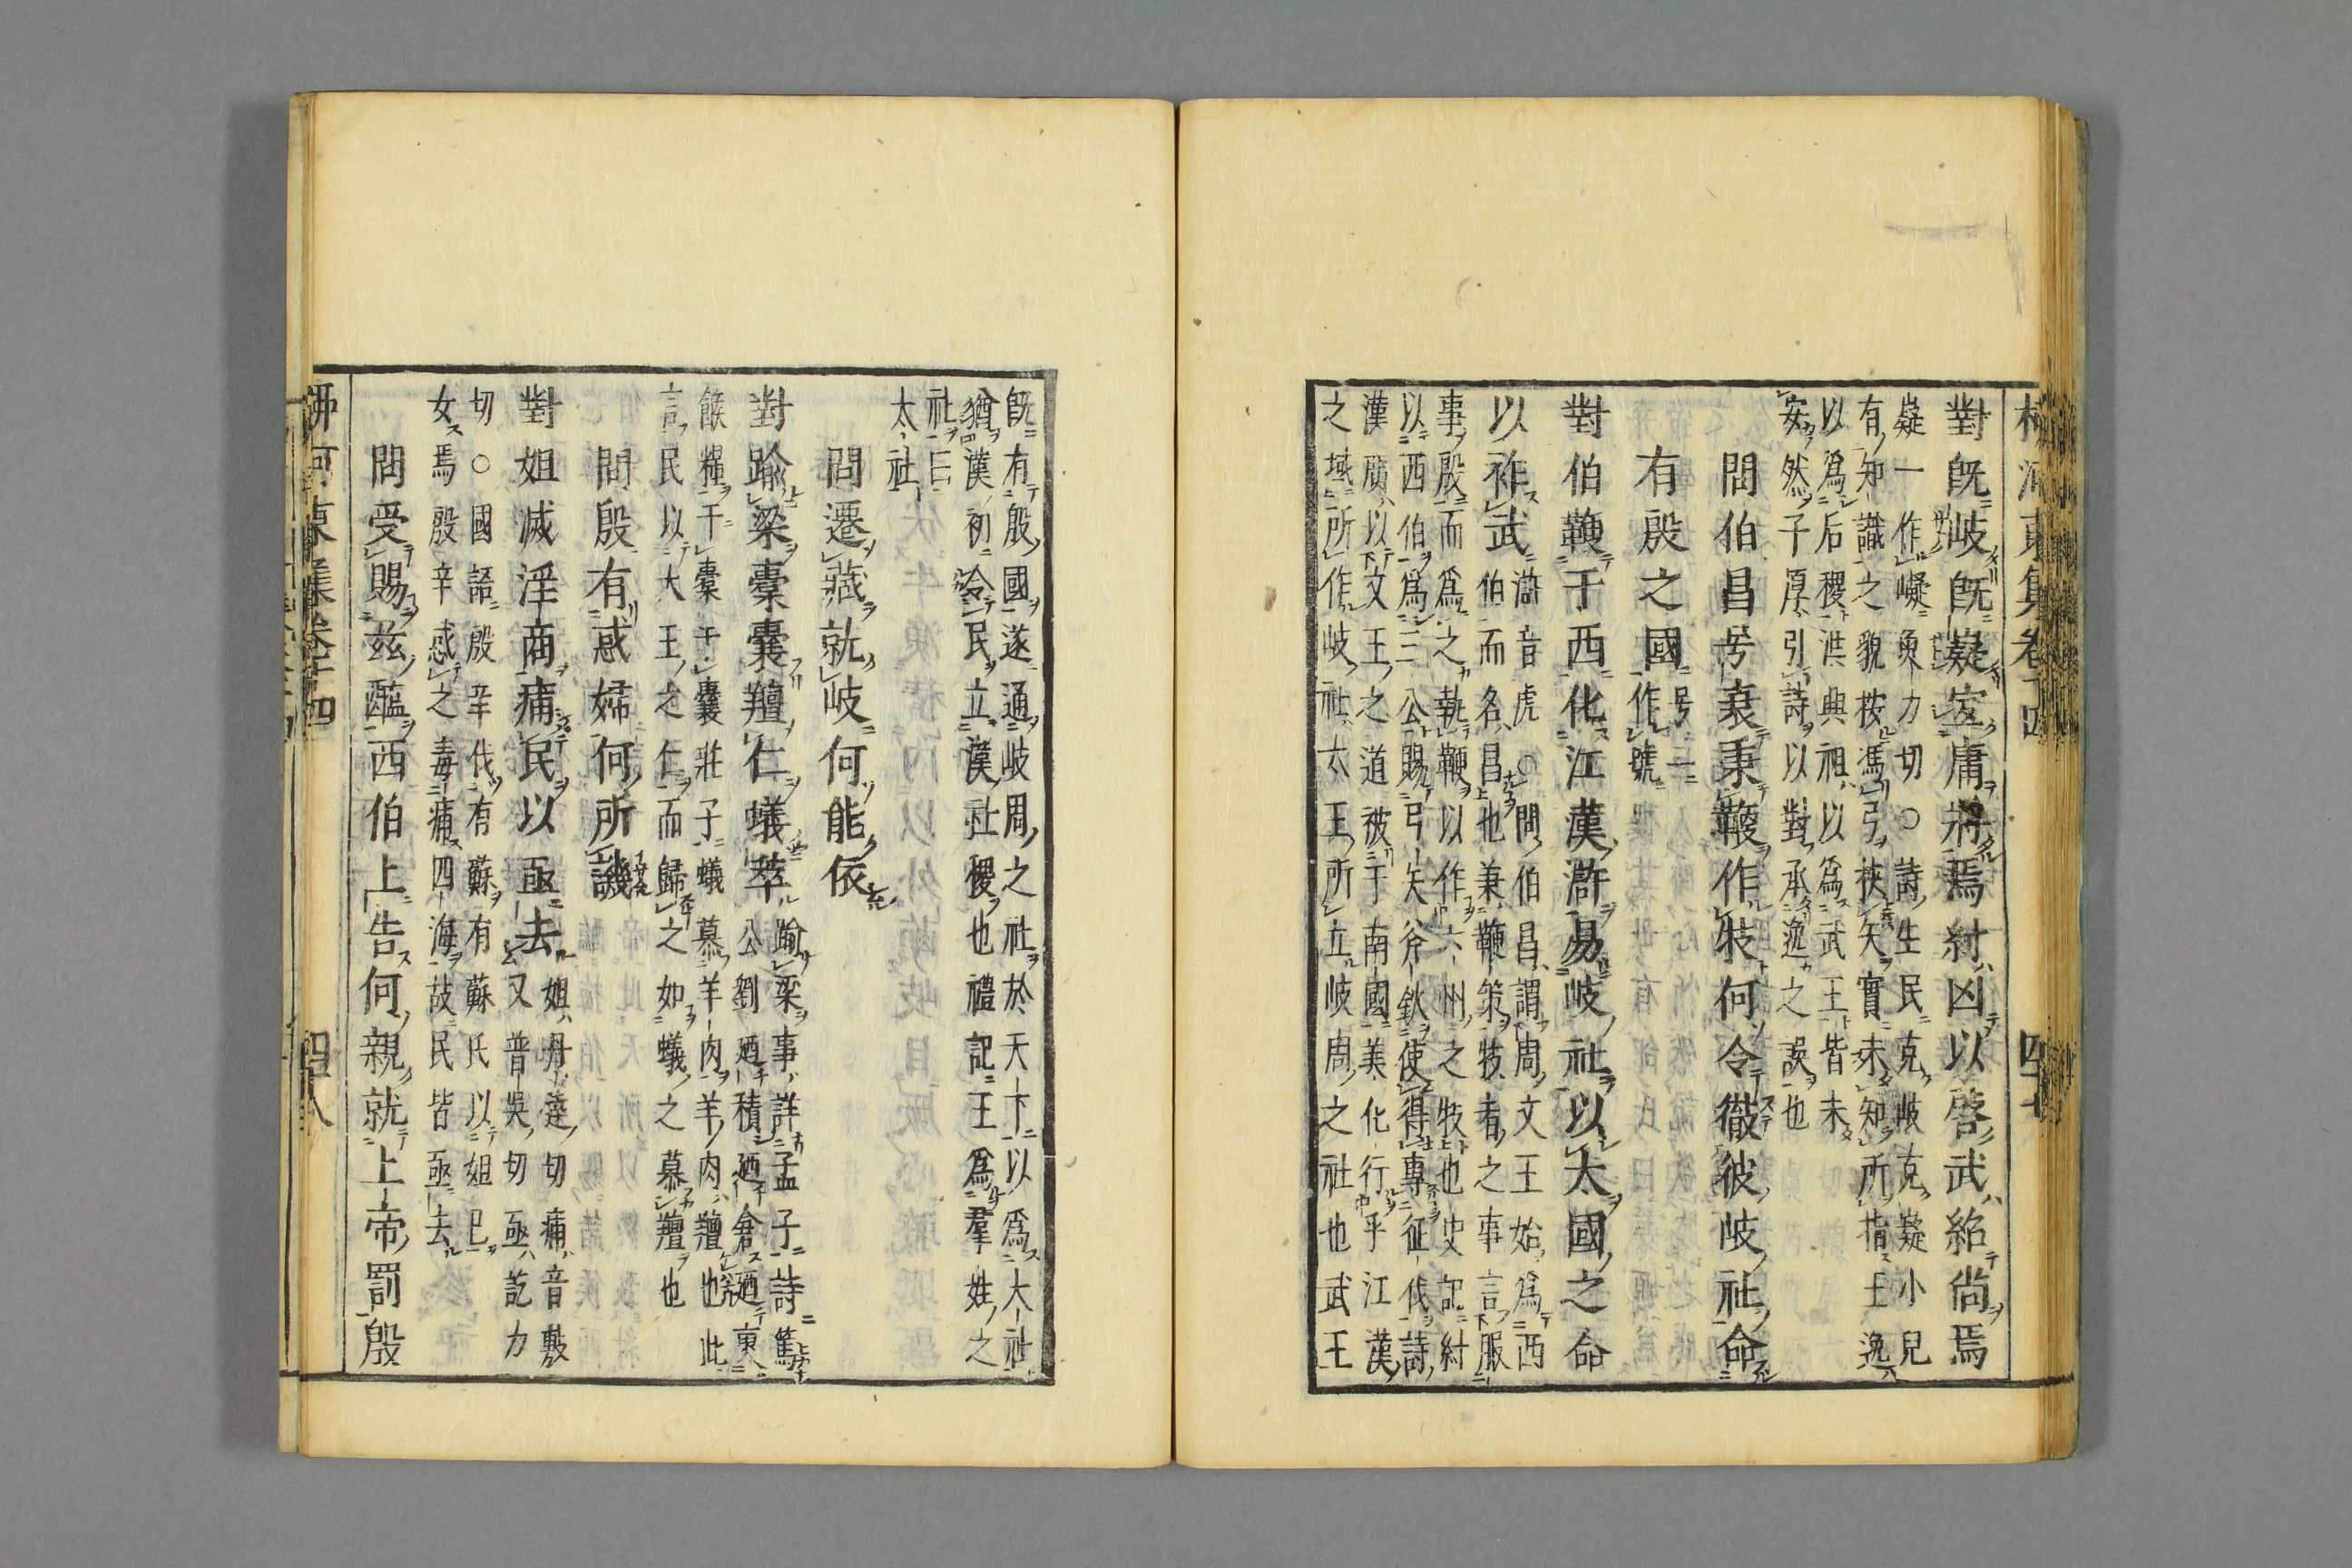 柳河東集卷十四
對既岐既嶷宐庸將焉紂凶以啓武紹尙焉
嶷一作㠜魚力切○詩生民克岐克嶷小兒
有知識之貌按馮弓挾矢實未知所指王逸
以爲后稷洪興祖以爲武王皆未
安然子厚引詩以對承逸之誤也
問伯昌号衰秉鞭作牧何令徹彼岐社命
有殷之國号一作號
對伯鞭于西化江漢滸易岐社以太國之命
以祚武滸音虎○問伯昌謂周文王始爲西
伯而名昌也秉鞭策牧者之事言服
事殷而爲之執鞭以作六州之牧也史記紂
以西伯爲三公賜弓矢斧鈇使得專征伐詩
漢廣以文王之道被于南國美化行乎江漢
之域所作岐社太王所立岐周之社也武王
既有殷國遂通岐周之社於天下以爲大社
猶漢初令民立漢社稷也禮記王爲羣姓之
社曰
太社
問遷藏就岐何能依
對踰梁橐囊羶仁蟻萃踰梁事詳孟子詩篤
公劉廼積廼倉廼裹
餱糧于橐于囊莊子蟻慕羊肉羊肉羶也此
言民以大王之仁而歸之如蟻之慕羶也
問殷有惑婦何所譏
對妲滅淫商痡民以亟去妲丹達切痡音敷
又普吳切亟訖力
切○國語殷辛伐有蘇有蘇氏以妲己
女焉殷辛惑之毒痡四海故民皆亟去
問受賜茲醢西伯上告何親就上帝罰殷
柳河東集卷十四
四十八